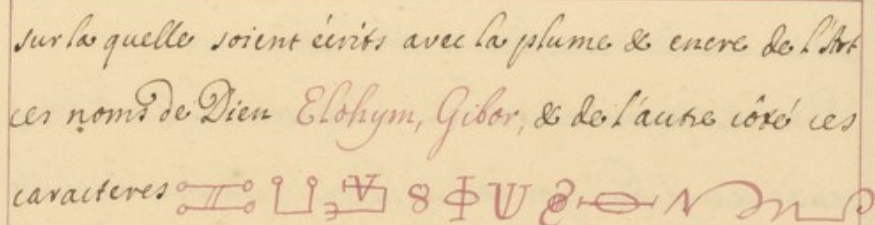 sur la quelle soient écrits avec la plume & encre de l'Art
ces noms de Dieu Elohym, Gibor, & de l'autre côté ces
caracteres